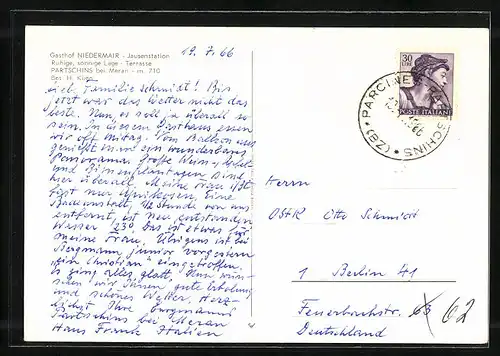 Gasthof NIEDERMAIR - Jausenstation
Ruhige, sonnige Lage - Terrasse
PARTSCHINS bei Meran - m. 710
Bes. H.
12.7.66
Familie Schmidt! Bis
jetzt war das Wetter nicht das
beste. Nun, es soll ja überall so
sein. In diesem Gasthaus essen
wir oft Mittag. Vom Balkon aus
genießt man ein wunderbares
Panorama. Große Wein-, Apfel
und Birnenplantagen sind
hier überall. Meine Frau ißt
fast nur Aprikosen. Eine
Badeanstalt, 1/2 Stunde von uns
entfernt, ist neu entstanden
Wasser 23°. Das ist etwas für
meine Frau. Übrigens ist bei
Bergmann junior vorgestern
"ein Christian" eingetroffen,
es ging alles glatt. Nun wün-
schen wir Ihnen gute Erholung
und schönes Wetter. Herz-
lichst Ihre Bergmanns
Partschins bei Meran
Haus Frank Italien
30
LIRE
POSTE ITALIANE
PARCINES
PARTSCHINS
(BZ)
Herrn
OStR Otto Schmidt
1 Berlin 41
Feuerbachstr. 63 62
Deutschland